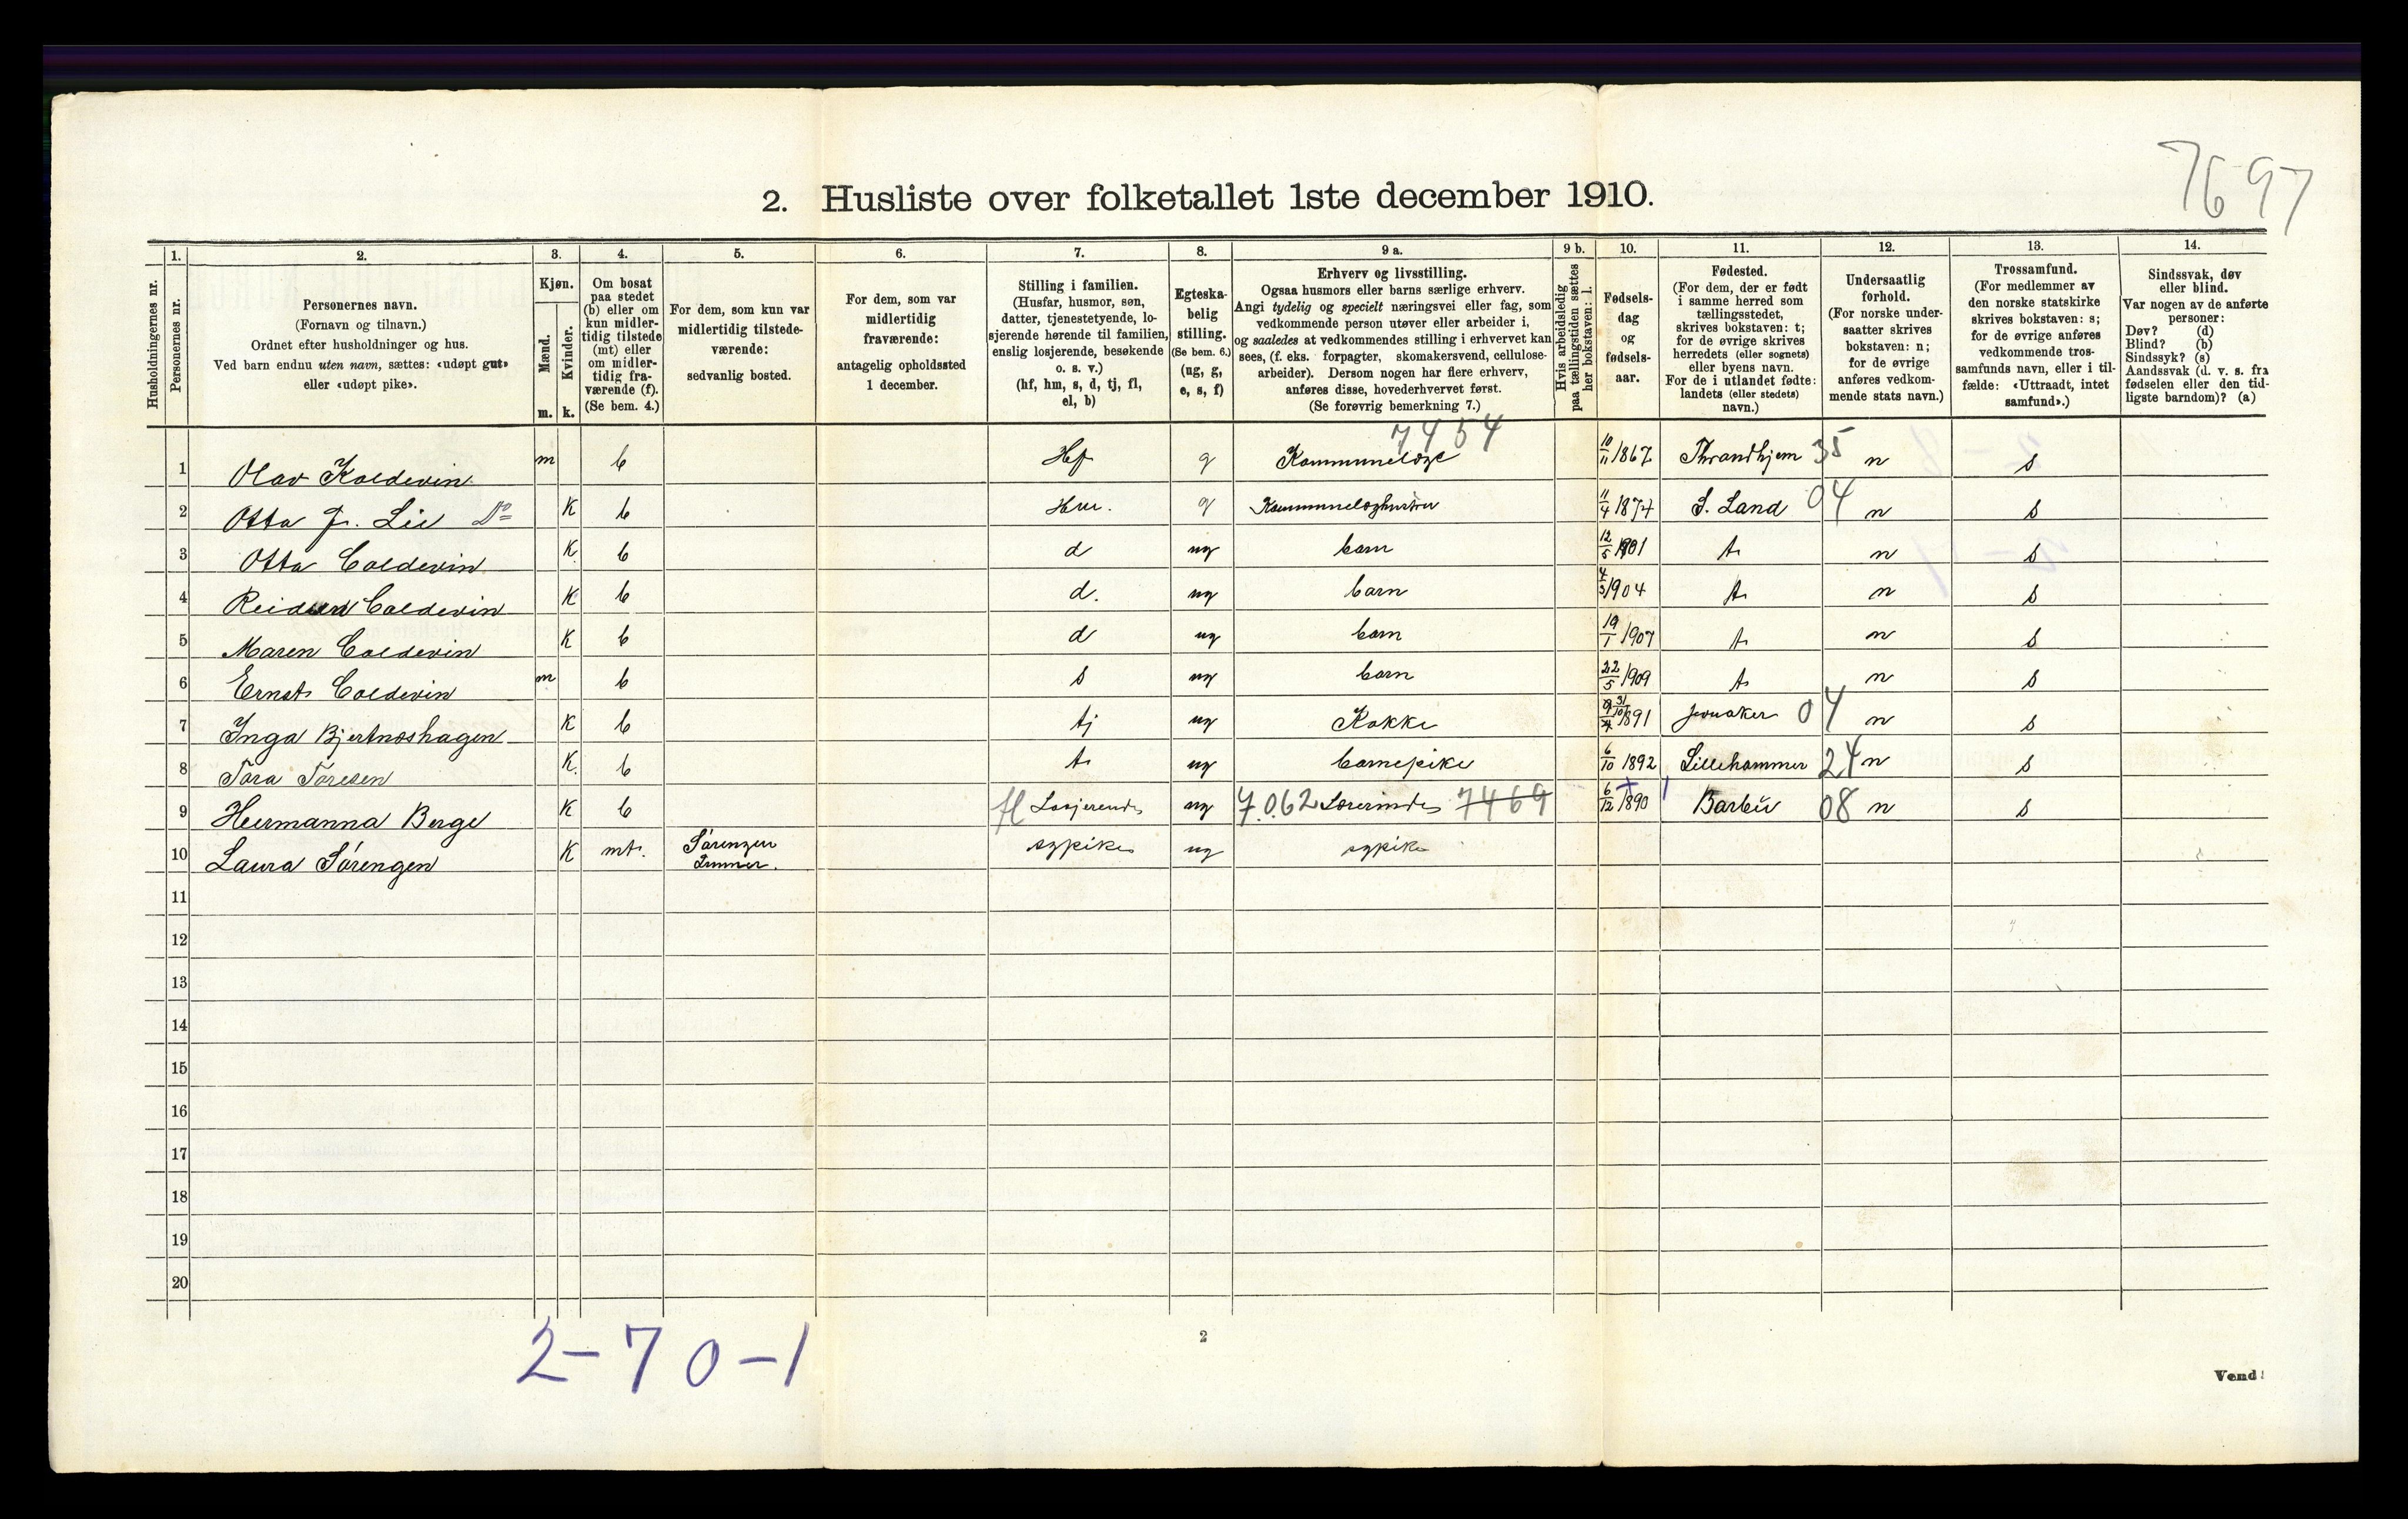 7697
2. Husliste over folketallet 1ste december 1910.
Husholdningernes nr.
1.
Personernes nr.
2.
Personernes navn.
(Fornavn og tilnavn.)
Ordnet efter husholdninger og hus.
Ved barn endnu uten navn, sættes: «udøpt gut»
eller «udøpt pike».
3.
Kjøn.
Mænd.
m.
Kvinder.
k.
4.
Om bosat
paa stedet
(b) eller om
kun midler-
tidig tilstede
(mt) eller
om midler-
tidig fra-
værende (f).
(Se bem. 4.)
5.
For dem, som kun var
midlertidig tilstede-
værende:
sedvanlig bosted.
6.
For dem, som var
midlertidig
fraværende:
antagelig opholdssted
1 december.
7.
Stilling i familien.
(Husfar, husmor, søn,
datter, tjenestetyende, lo-
sjerende hørende til familien,
enslig losjerende, besøkende
o. s. v.)
(hf, hm, s, d, tj, fl,
el, b)
8.
Egteska-
belig
stilling.
(Se bem. 6.)
(ug, g,
e, s, f)
9 a.
Erhverv og livsstilling.
Ogsaa husmors eller barns særlige erhverv.
Angi tydelig og specielt næringsvei eller fag, som
vedkommende person utøver eller arbeider i,
og saaledes at vedkommendes stilling i erhvervet kan
sees, (f. eks. forpagter, skomakersvend, cellulose-
arbeider). Dersom nogen har flere erhverv,
anføres disse, hovederhvervet først.
(Se forøvrig bemerkning 7.)
9 b.
Hvis arbeidsledig
paa tællingstiden sættes
her bokstaven: l.
10.
Fødsels-
dag
og
fødsels-
aar.
11.
Fødested.
(For dem, der er født
i samme herred som
tællingsstedet,
skrives bokstaven: t;
for de øvrige skrives
herredets (eller sognets)
eller byens navn.
For de i utlandet fødte:
landets (eller stedets)
navn.)
12.
Undersaatlig
forhold.
(For norske under-
saatter skrives
bokstaven: n;
for de øvrige
anføres vedkom-
mende stats navn.)
13.
Trossamfund.
(For medlemmer av
den norske statskirke
skrives bokstaven: s;
for de øvrige anføres
vedkommende tros-
samfunds navn, eller i til-
fælde: «Uttraadt, intet
samfund».)
14.
Sindssvak, døv
eller blind.
Var nogen av de anførte
personer:
Døv? (d)
Blind? (b)
Sindssyk? (s)
Aandssvak (d. v. s. fra
fødselen eller den tid-
ligste barndom)? (a)
7454
1 Olav Koldevin m b Hf g Kommunelæge 10/11 1867 Thrandhjem 35 n s
2 Otta Fr. Lie Do K b Hm. g 11/4 1874 S. Land 04 n s
3 Otta Coldevin K b d ug barn 12/5 1901 t n s
4 Reidun Coldevin K b d. ug barn 4/3 1904 t n s
5 Maren Coldevin K b d ug barn 19/1 1907 t n s
6 Ernst Coldevin m b s ug barn 22/5 1909 t n s
7 Inga Bjertnæshagen K b tj ug Kokke 31/10 1891 Jevnaker 04 n s
8 Tora Toresen K. b t ug barnepike 6/10 1892 Lillehammer 24 n s
9 Hermanna Berge K b fl Losjerende ug 7.062 Lærerinde 7469 6/12 1890 Barbu 08 n s
10 Laura Sørengen K mt. Sørengen sypike ug sypike
11
12
13
14
15
16
17
18
19
20
2-70-1
2
Vend!